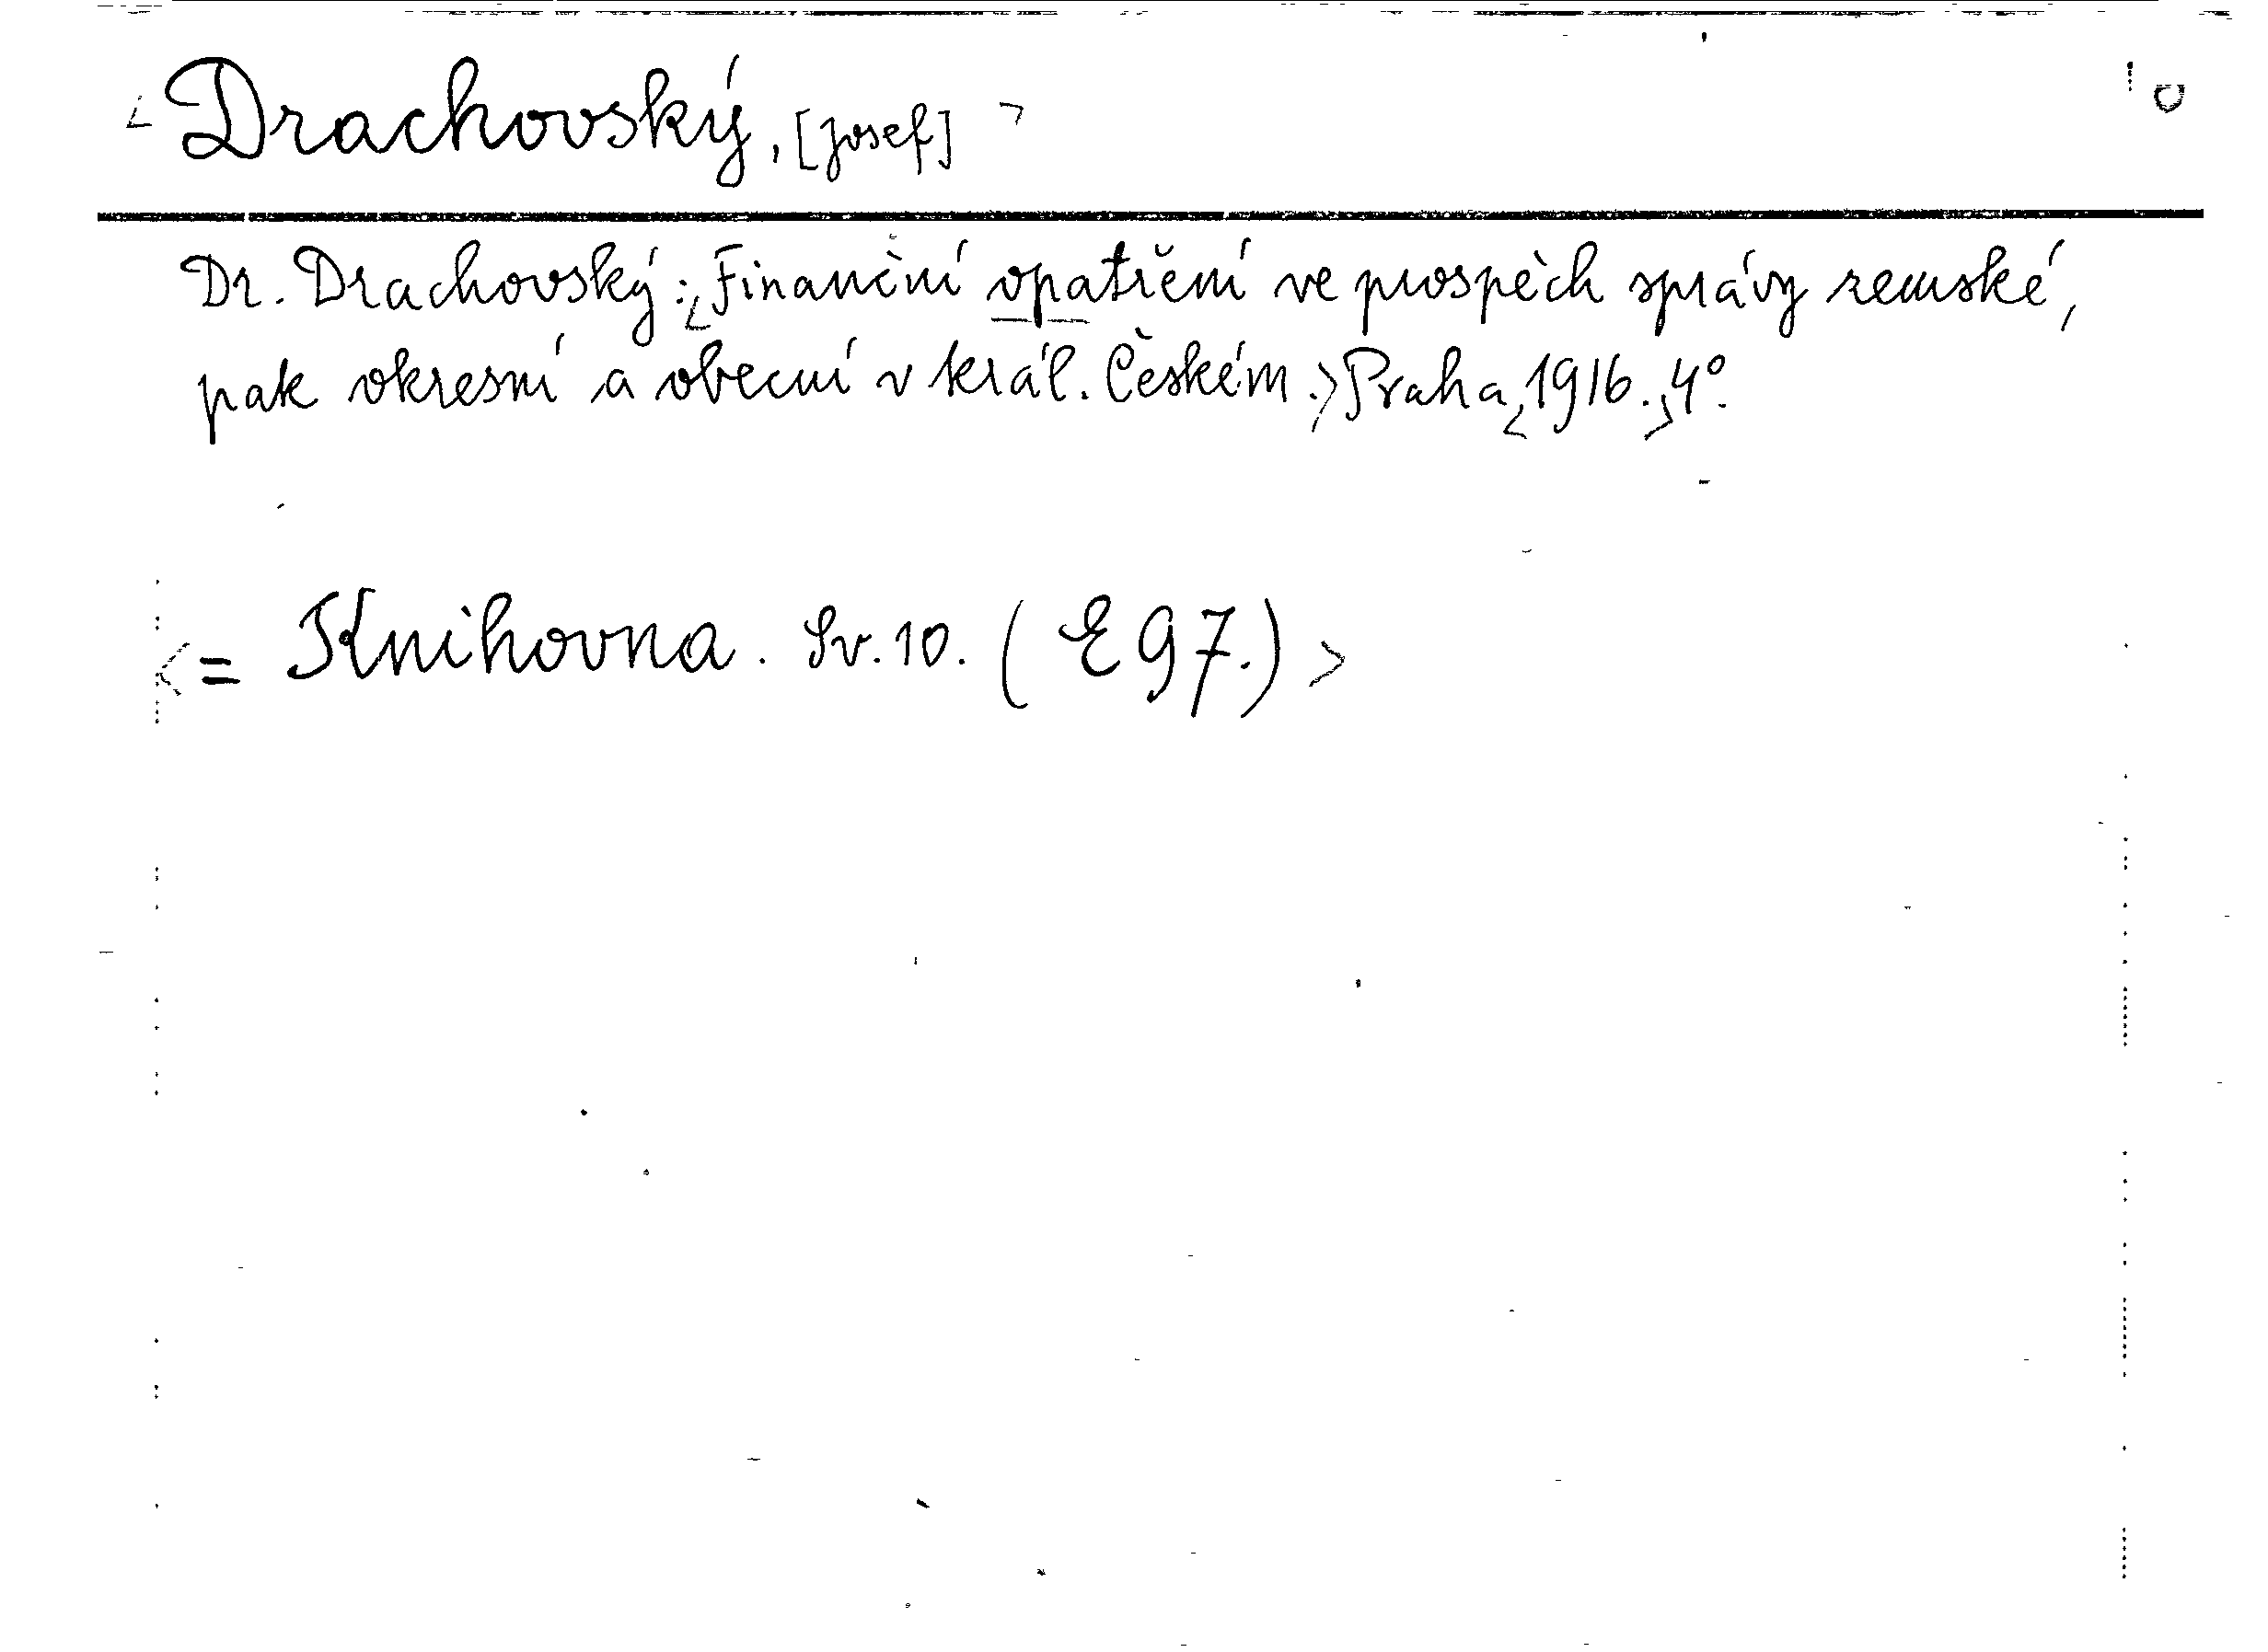 <Drachovský, [Josef]>
Dr. Drachovský: <Finanční opatření ve prospěch správy zemské,
pak okresní a obecní v král. Českém.> Praha, <1916.,> 4°.
<= Knihovna. Sv. 10. (E 97.)>